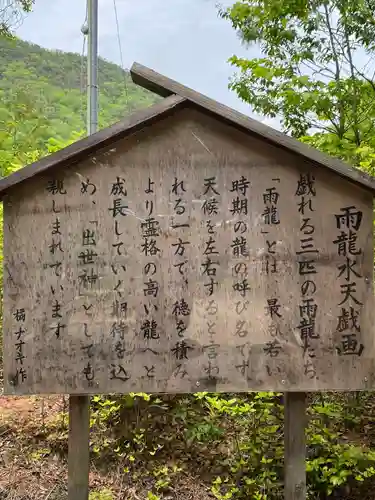 雨龍水天戯画
戯れる三匹の雨龍たち、
「雨龍」とは、最も若い
時期の龍の呼び名です
天候を左右すると言わ
れる一方で、徳を積み
より霊格の高い龍へと
成長していく期待を込
め、「出世神」としても
親しまれています